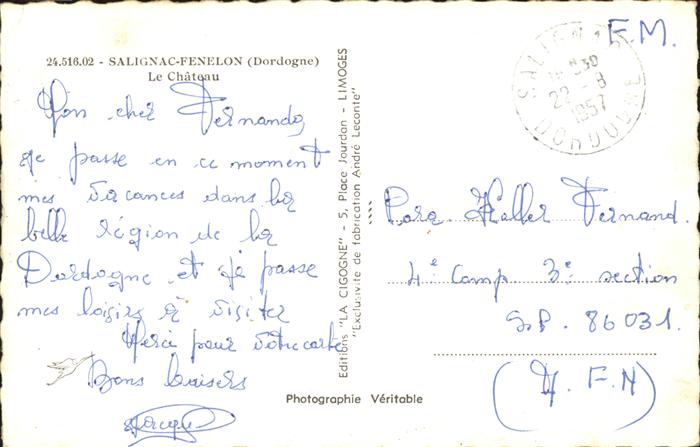 24.516.02 - SALIGNAC-FENELON (Dordogne)
Le Château
Mon cher Fernando,
je passe en ce moment
mes vacances dans la
belle région de la
Dordogne et je passe
mes loisirs à visiter
Merci pour votre carte
Bons baisers
Jacques
Editions "LA CIGOGNE" - 5, Place Jourdan - LIMOGES
"Exclusivité de fabrication André Leconte"
Photographie Véritable
F.M.
SALIGNAC
22 - 8
1957
DORDOGNE
Para Haller Fernand.
4e Comp 3e section
S.P. 86031.
(A.F.N)